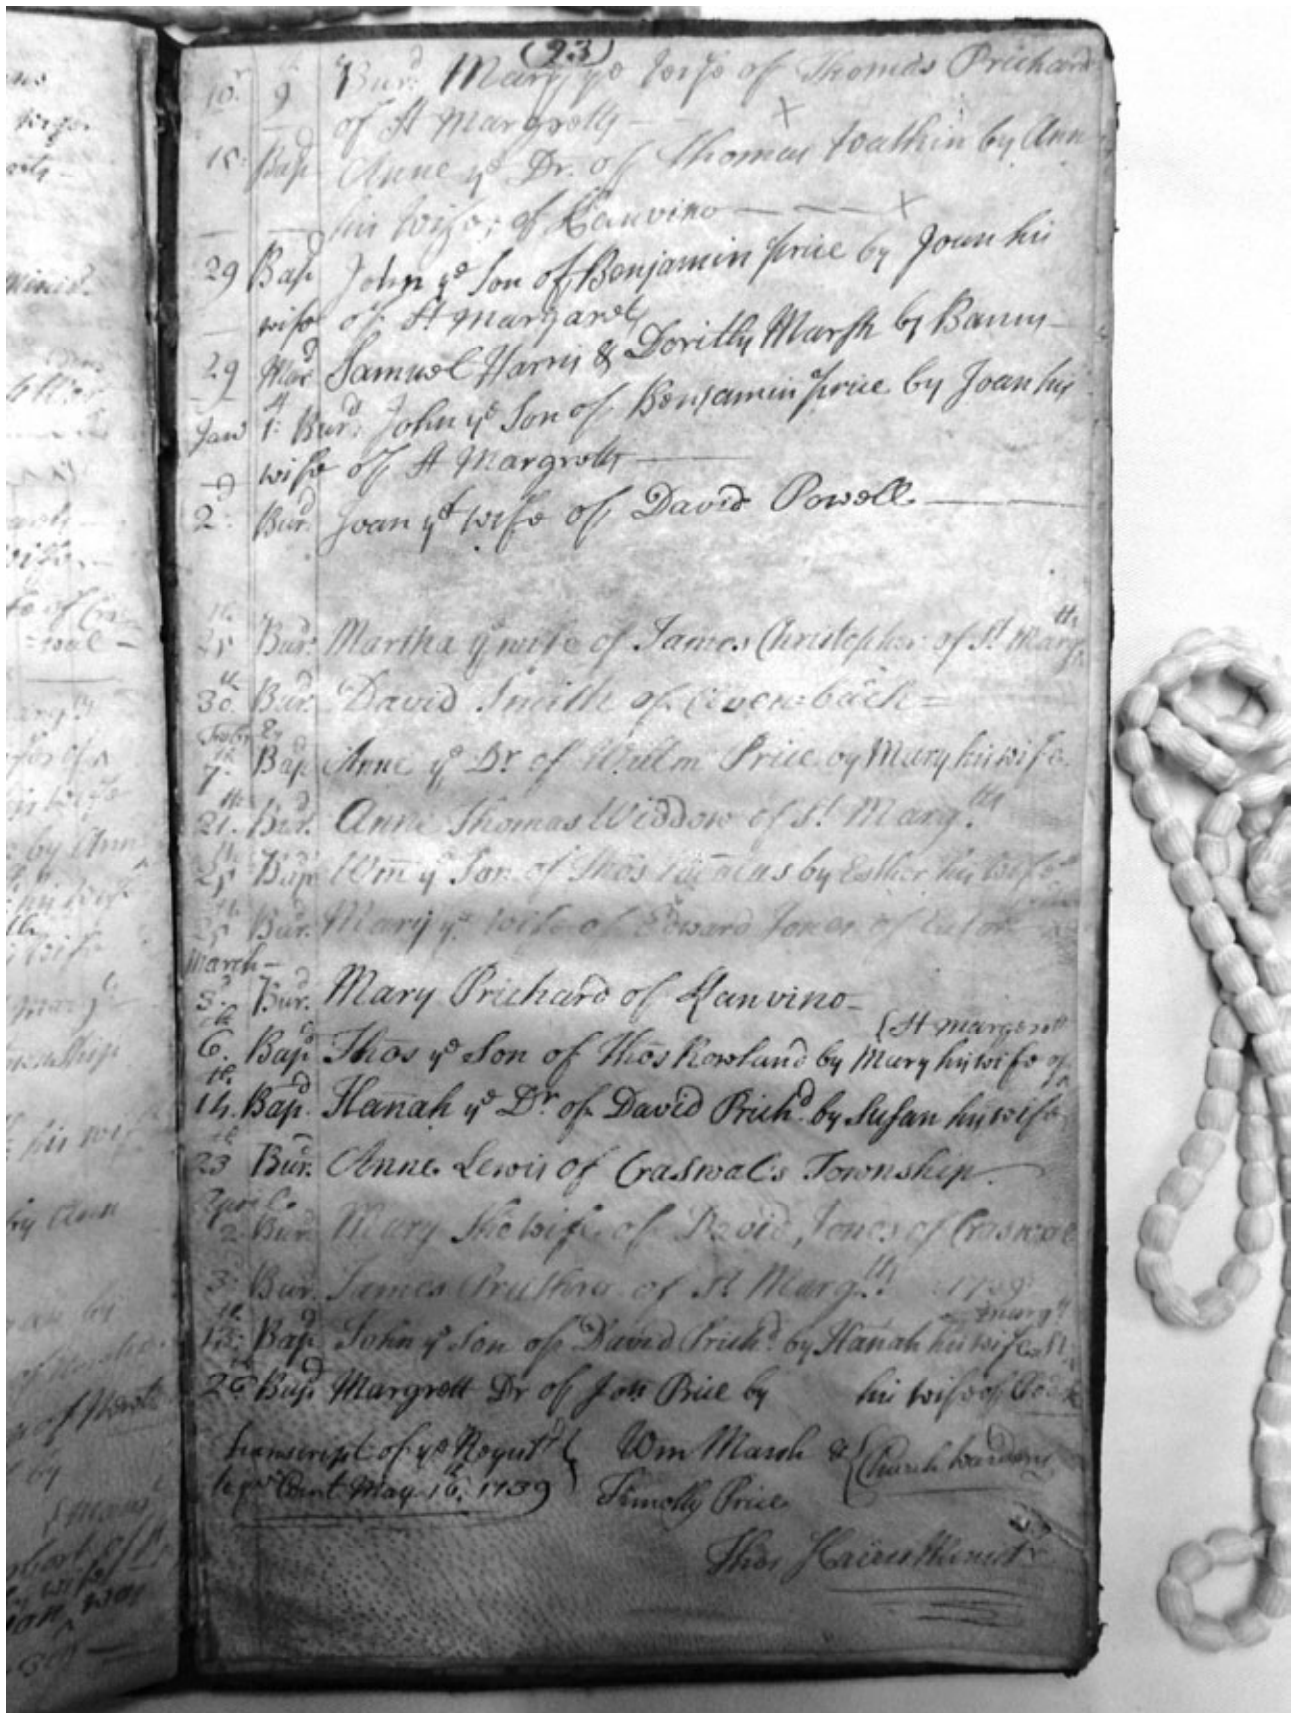 (93)
10. 9 Burd. Mary ye wife of Thomas Prichard
of St Margretts
15 Bapd Anne ye Dr. of Thomas Watkin by Ann
his wife, of Lanvino
29 Bapd John ye Son of Benjamin Price by Joan his
wife of St Margarets
29 Mard Samuel Harris & Dorithy Marsh by Banns
Janr 1st Burd. John ye Son of Benjamin Price by Joan his
wife of St Margretts
2d. Burd. Joan ye wife of David Powell
25th Burd. Martha ye wife of James Christopher of St Margtts
30th Burd. David Smith of
Febry
7th. Bapd Anne ye Dr of Willm Price by Mary his wife
21th. Burd. Anne Thomas Widdow of St Margtts
25th Bapd Wm ye Son of Thos by Esther his wife
25th Burd. Mary ye wife of Edward Jones of
March
3d. Burd. Mary Prichard of Lanvino
{St margerett
6th. Bapd Thos ye Son of Thos Rowland by Mary his wife of
14th. Bapd. Hanah ye Dr of David Prichd. by Susan his wife
23th Burd. Anne Lewis of Craswals Township.
April
2d Burd Mary the wife of David Jones of Craswal
3d Burd. James Pruthro of St Margtts 1739
Margtt
15th. Bapd John ye Son of David Prichd. by Hanah his wife St
26th Bapd Margrett Dr of Jon Price by his wife of
transcript of ye Regustr } Wm Marsh & { Church wardens
Court May 16th. 1739 } Timothy Price
Thos